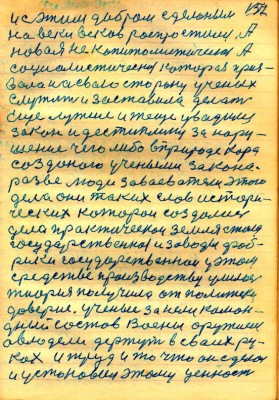 157
и с этим добром сделоным
на веки веков роспростилис, А
новая не копитолитическая А
социалистическая которая приз-
вала на сваю сторону ученых
служить и заставила делат
еще лутше и тещо увадили
закон и дестиплину за нару-
шение чего либо в природе кара
созданого учеными закона.
разве люди завоеватели этого
дела они таких слов истори-
ческих которои создолис
дела практическои земля стала
государственнои и заводи фоб-
рики государственнои у этом
средстве производству
тиория получила от политики
доверие. ученые за ней коман-
дный состов Воены оружием
авлодели держут в сваих ру-
ках и труд и то что он сделол
и устоновил этому ценност